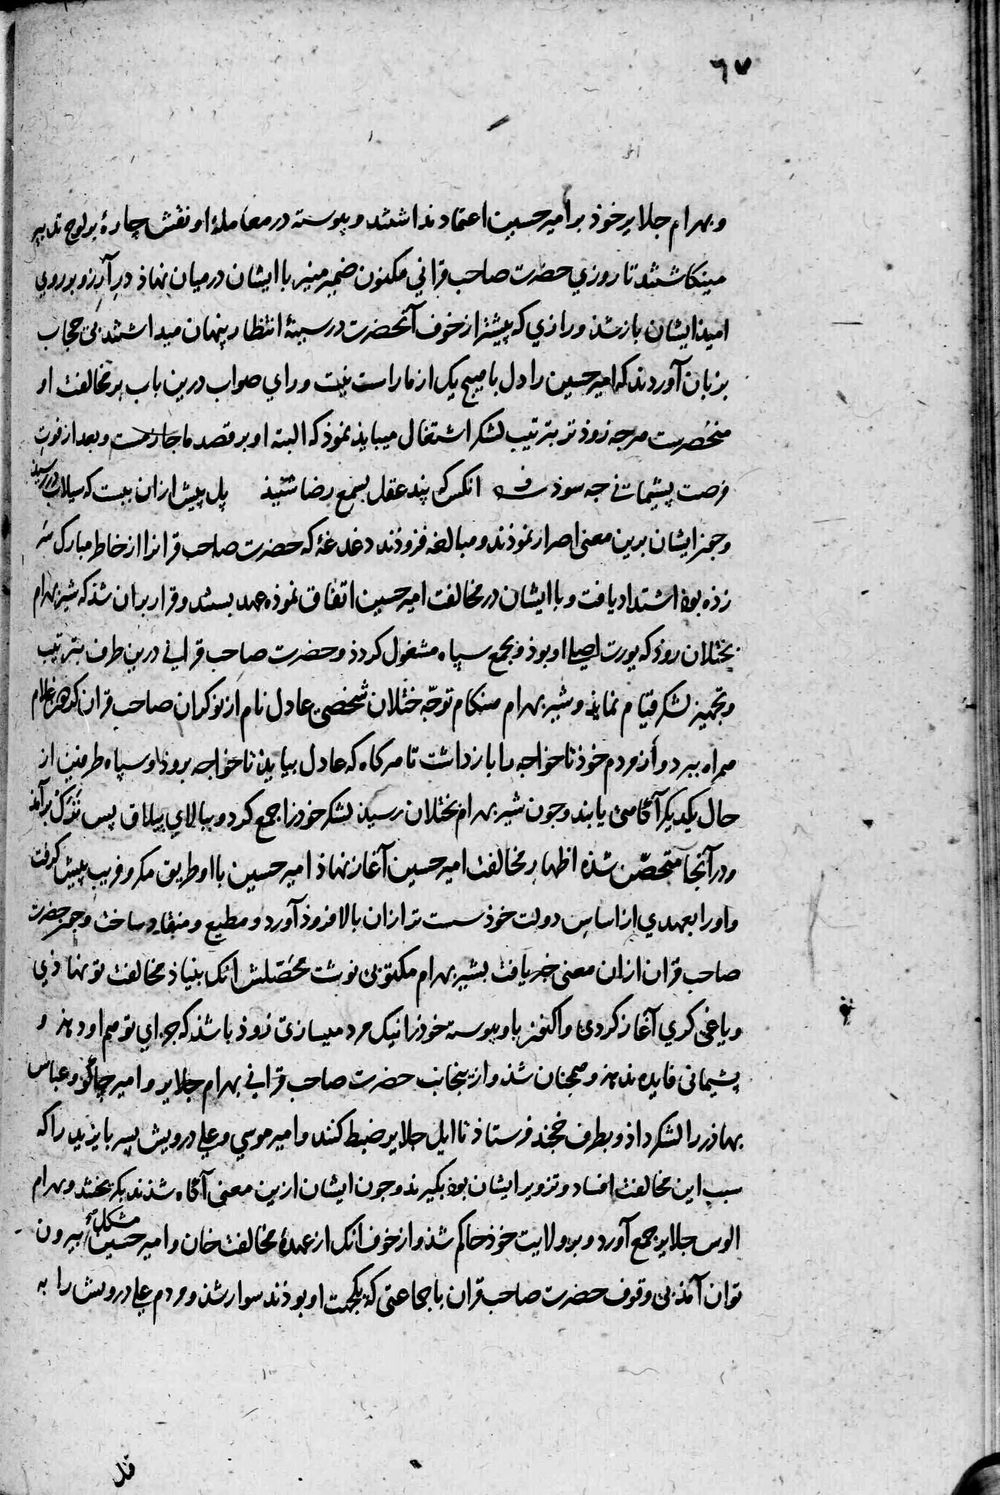 ٦٧
و بهرام جلایر خوذ بر امیر حسین اعتماد نداشتند و پیوسته در معاملهٔ او نقش چارهٔ بر لوح تدبیر
مینکاشتند تا روزی حضرت صاحب قرانی مکنون ضمیر منیر با ایشان در میان نهاذ در آرزو بر روی
امیذ ایشان باز شذ و رازی که پیشتر از خوف آنحضرت در سینهٔ انتظار پنهان میداشتند بی حجاب
بزبان آوردند که امیر حسین را دل با هیچ یک از ما راست نیست و رای صواب درین باب بر مخالفت او
منحصرست هرچه زوذتر بترتیب لشکر اشتغال میبایذ نموذ که البته او بر قصد ما جازمست و بعد از فوت
فرصت پشیمانی چه سوذ انکس که پند عقل بسمع رضا شنید پل پیش ازان ببست که سیلاب در رسید
و چون ایشان برین معنی اصرار نموذند و مبالغه فزوذند دغدغهٔ که حضرت صاحب قرانرا از خاطر مبارک سر
زذه بوذ اشتداد یافت و با ایشان در مخالفت امیر حسین اتفاق نموذه عهد بستند و قرار بران شذ که شیر بهرام
بختلان روذ که یورت اصلی او بوذ و بجمع سپاه مشغول کردذ و حضرت صاحب قرانی درین طرف بترتیب
و تجهیز لشکر قیام نماید و شیر بهرام هنکام توجّه ختلان شخصی عادل نام از نوکران صاحب قران که هم غلام
همراه ببرد و از مردم خوذ تاخواجه را باز داشت تا هرکاه که عادل بیاید تاخواجه بروذ و سپاه طرفین از
حال یکدیکر آکاهی یابند و چون شیر بهرام بختلان رسیذ لشکر خوذ را جمع کرد و ببالای ییلاق پس برآمذ
و در آنجا متحصّن شذه اظهار مخالفت امیر حسین آغاز نهاذ امیر حسین با او طریق مکر و فریب پیش کرفت
و او را بعهدی از اساس دولت خوذ سست تر ازان بالا فروذ آورد و مطیع و منقاد ساخت و چون حضرت
صاحب قران ازان معنی خبر یافت بشیر بهرام مکتوبی نوشت محصّلش انک بنیاذ مخالفت تو نهاذی
و یاغی کری آغاز کردی و اکنون باو پیوسته خوذ را نیک مرد میسازی زوذ باشذ که جزای تو هم او دهد و
پشیمانی فایده ندهد و همچنان شذ و ازینجانب حضرت صاحب قرانی بهرام جلایر و امیر جاکو و عباس
بهاذر را لشکر داذ و بطرف خجند فرستاذ تا ایل جلایر ضبط کنند و امیر موسی و علی درویش پسر بایزید را که
سبب این مخالفت افساد و تزویر ایشان بوذ بکیرند و چون ایشان ازین معنی آکاه شذند بکریختند و بهرام
الوس جلایر جمع آورد و بر ولایت خوذ حاکم شذ و از خوف انک از عهدهٔ مخالفت خان و امیر حسین مشکل بیرون
توان آمذ بی وقوف حضرت صاحب قران با جماعتی که یکجهت او بوذند سوار شذ و مردم علی درویش را به
قتل